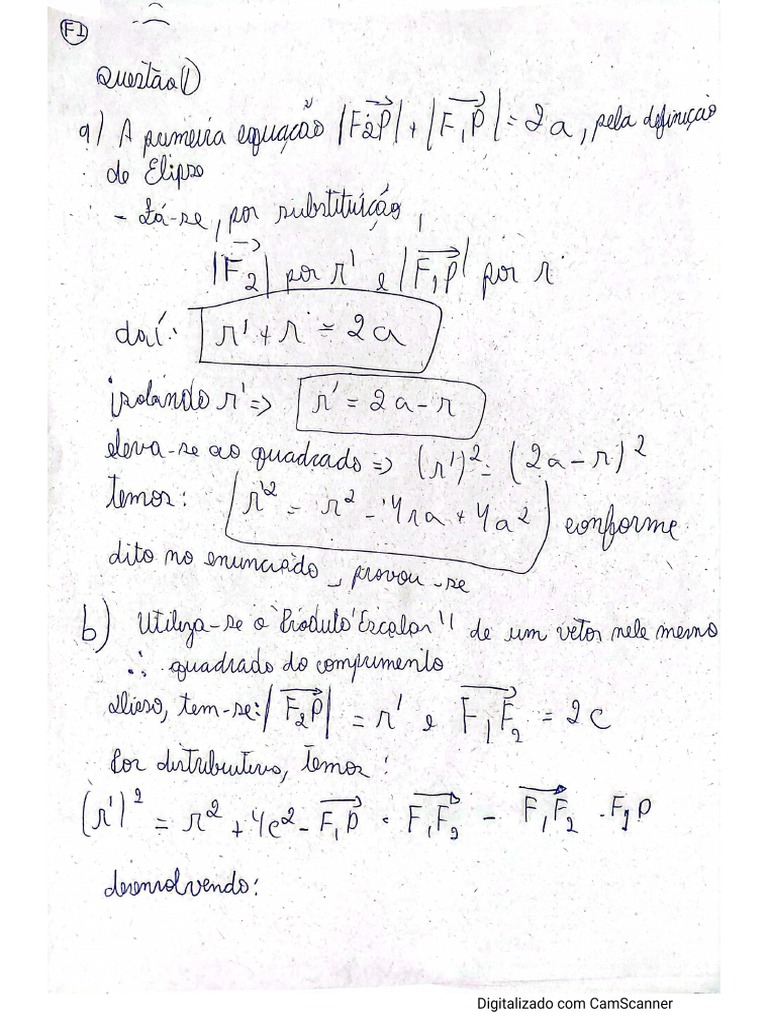 F1
Questão 1)
a) A primeira equação |F₂P| + |F₁P| = 2a, pela definição
de Elipse
- Lá-se, por substituição,
|F₂| por r' e |F₁P| por r
daí: r' + r = 2a
isolando r' => r' = 2a - r
eleva-se ao quadrado => (r')² = (2a - r)²
temos: r'² = r² - 4ra + 4a² conforme
dito no enunciado, provou-se
b) Utiliza-se o "Produto Escalar" de um vetor nele mesmo
∴ quadrado do comprimento
Disso, tem-se: |F₂P| = r' e F₁F₂ = 2c
Por distributiva, temos:
(r')² = r² + 4c² - F₁P · F₁F₂ - F₁F₂ · F₁P
desenvolvendo:
Digitalizado com CamScanner